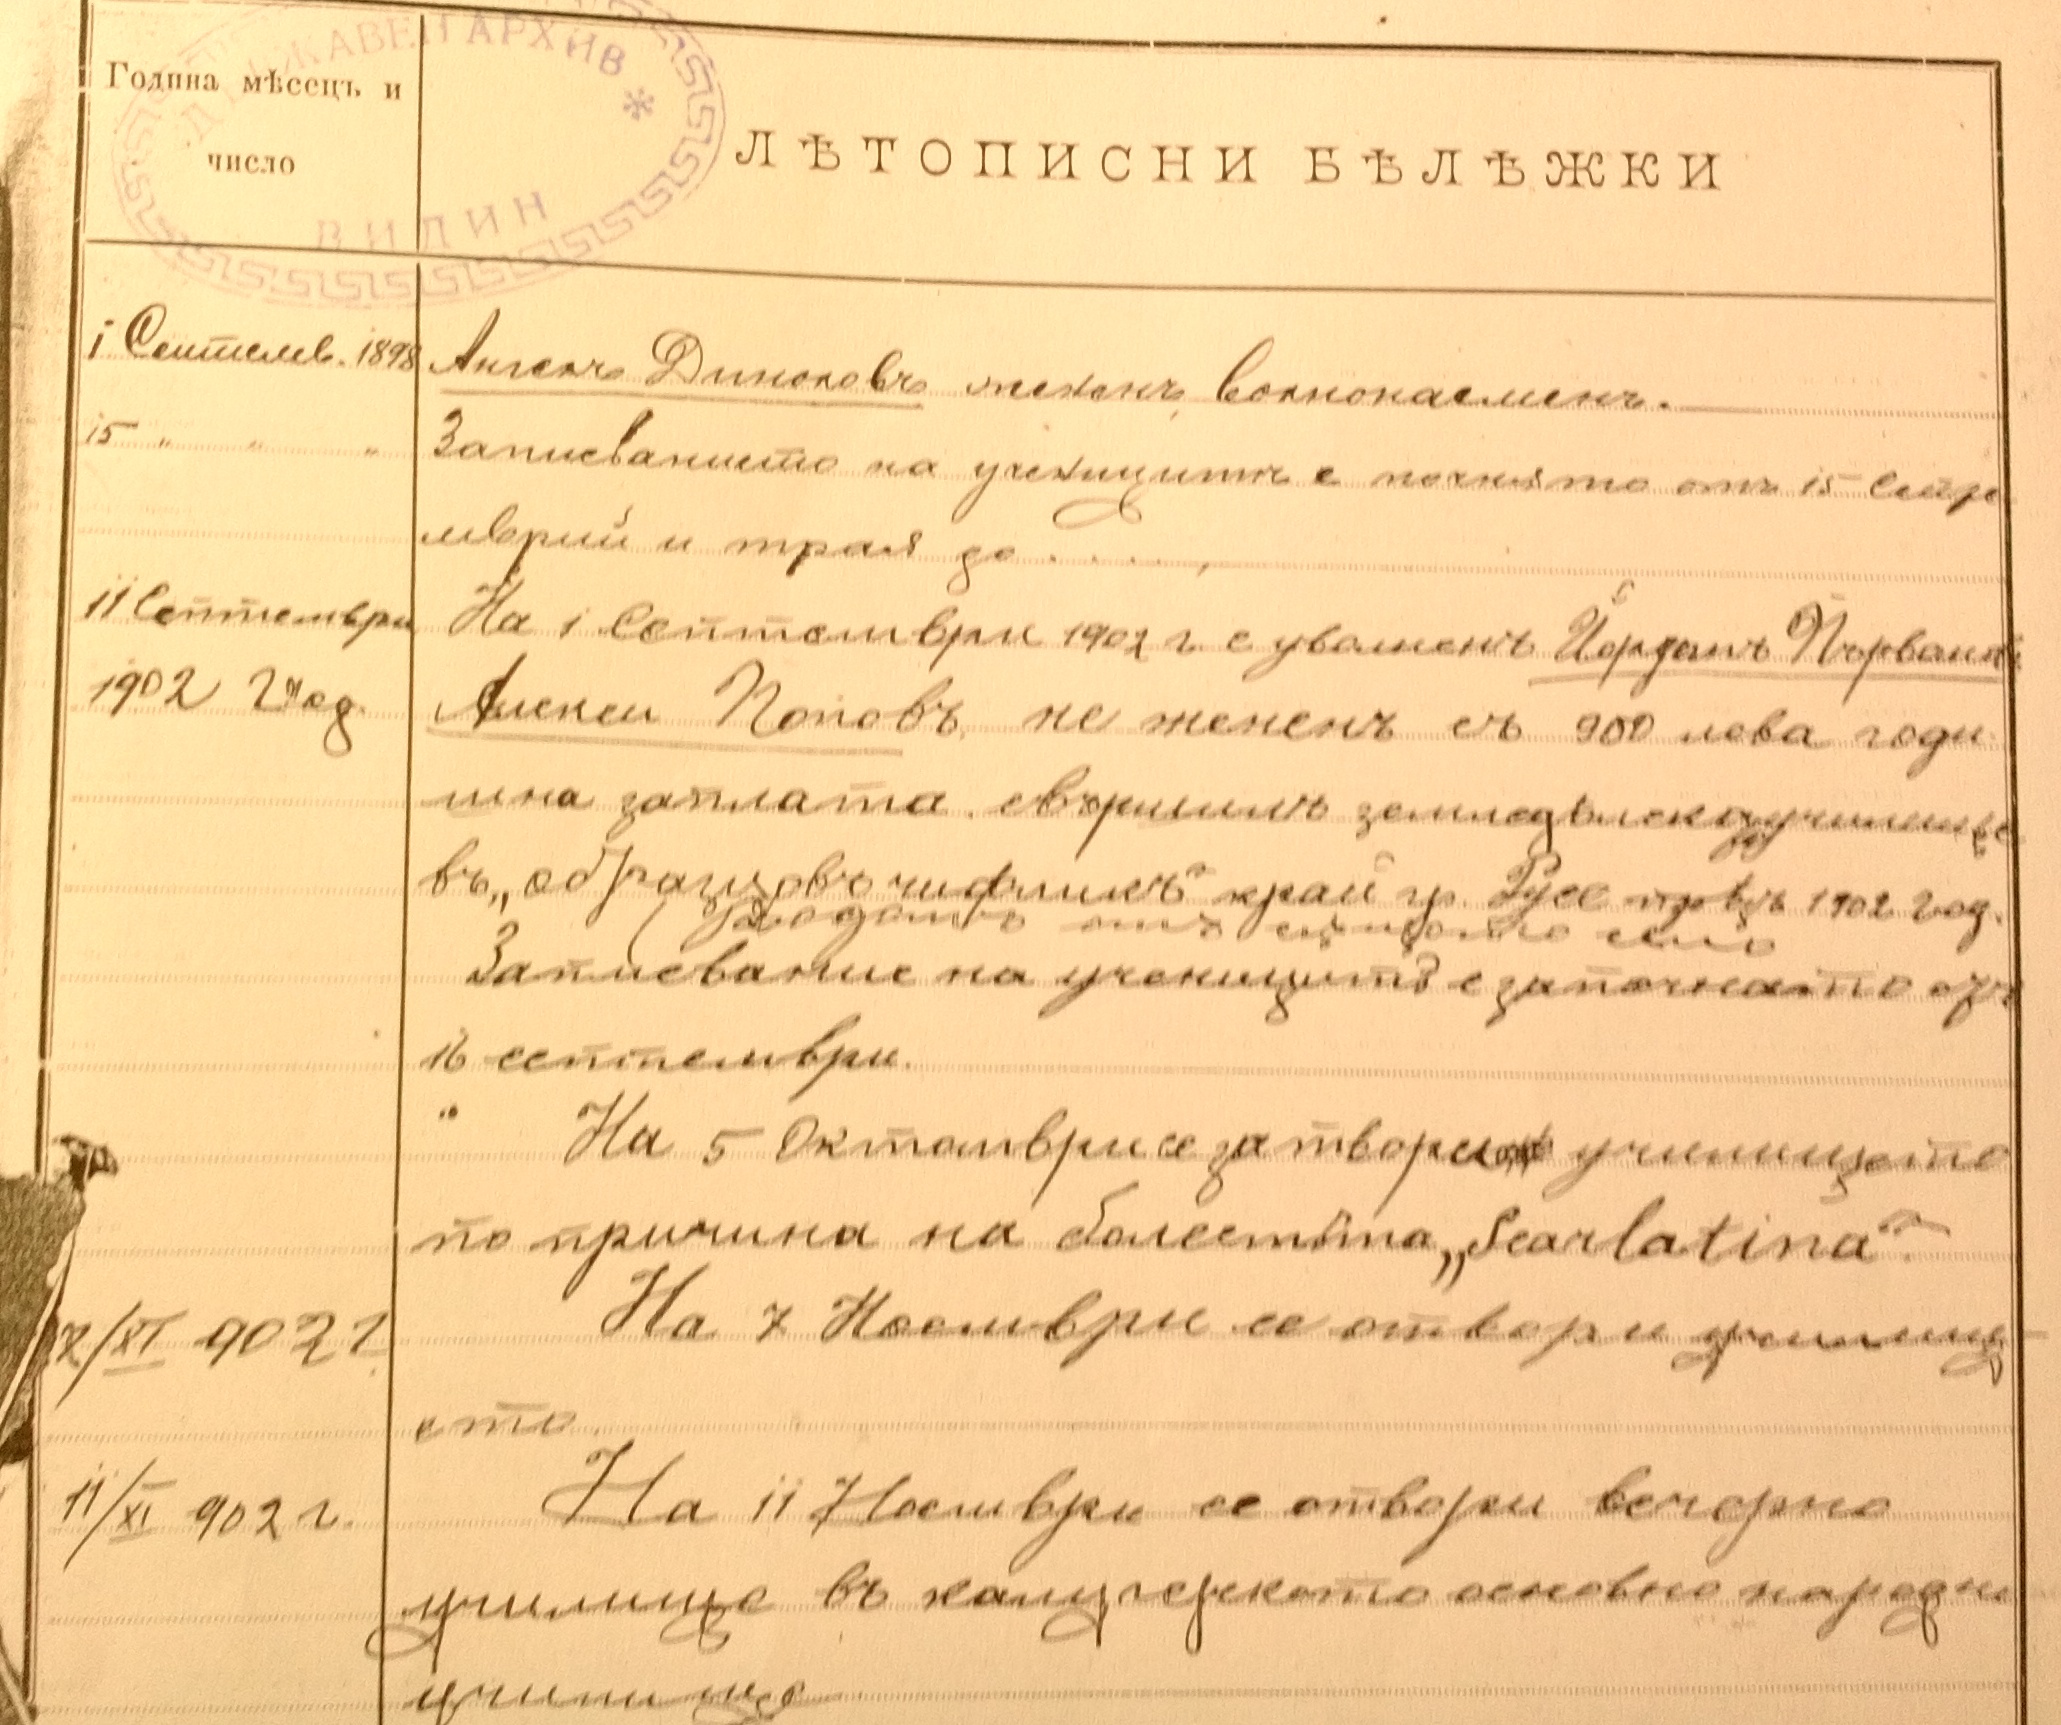 ДЪРЖАВЕН АРХИВ *
ВИДИН
Година мѣсецъ и
число
ЛѢТОПИСНИ БѢЛѢЖКИ
1 Септемв. 1898 Ангелъ Динковъ жененъ, волнонаеменъ.
15 " " " Записванието на ученицитѣ е почнято отъ 15 Септе
мврий и трая до . . . . . ,
11 Септември На 1 Септември 1902 г. е уволненъ Йорданъ Първановъ
1902 Год. Алекси Поповъ, не жененъ съ 900 лева годи
шна заплата. свършилъ земледѣлско училище
въ „образцовъ чифликъ" край гр. Русе прѣзъ 1902 год.
(Родомъ отъ сѫщото село
Записвание на ученицитѣ е започнато отъ
16 септември.
" На 5 Октомври се затвори училището
по причина на болестьта „Scarlatina".
7/XI 902 г. На 7 Ноември се отвори училищ
ето.
11/XI 902 г. На 11 Ноември се отвори вечерно
училище въ калугерското основно народно
училище